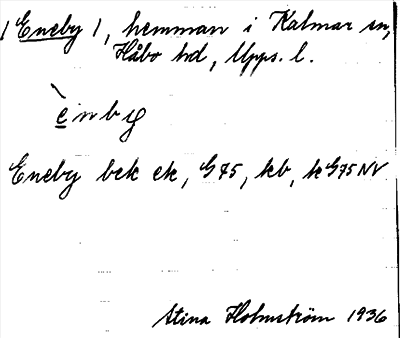 (Eneby), hemman i Kalmar sn,
Håbo hd, Upps. l.
ènby
Eneby bek ek, G75, kb, kG75NV
Stina Holmström 1936